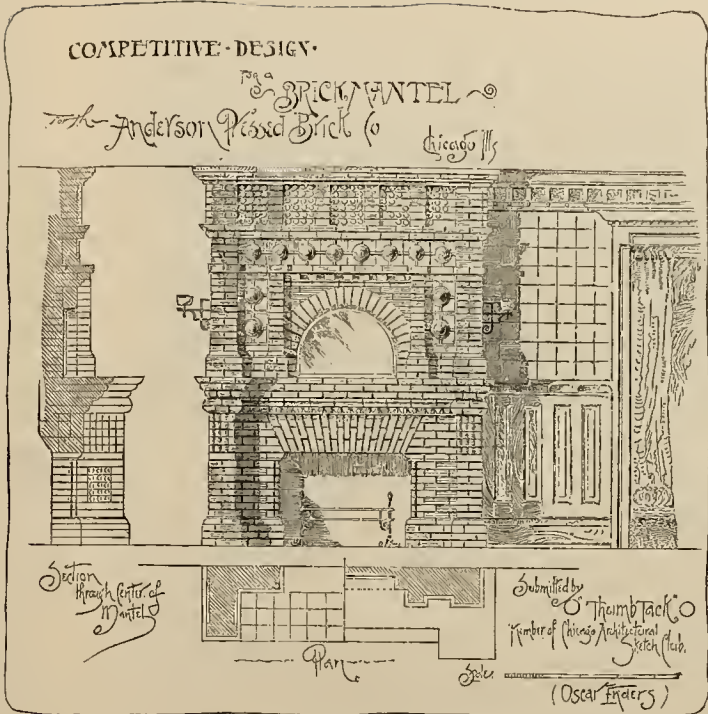 COMPETITIVE · DESIGN ·
for a
BRICK MANTEL
For the Anderson Pressed Brick Co
Chicago Ills
Section
through Center of
Mantel
Plan
Submitted by
"Thumb Tack"
Member of Chicago Architectural
Sketch Club.
Scale
(Oscar Enders)